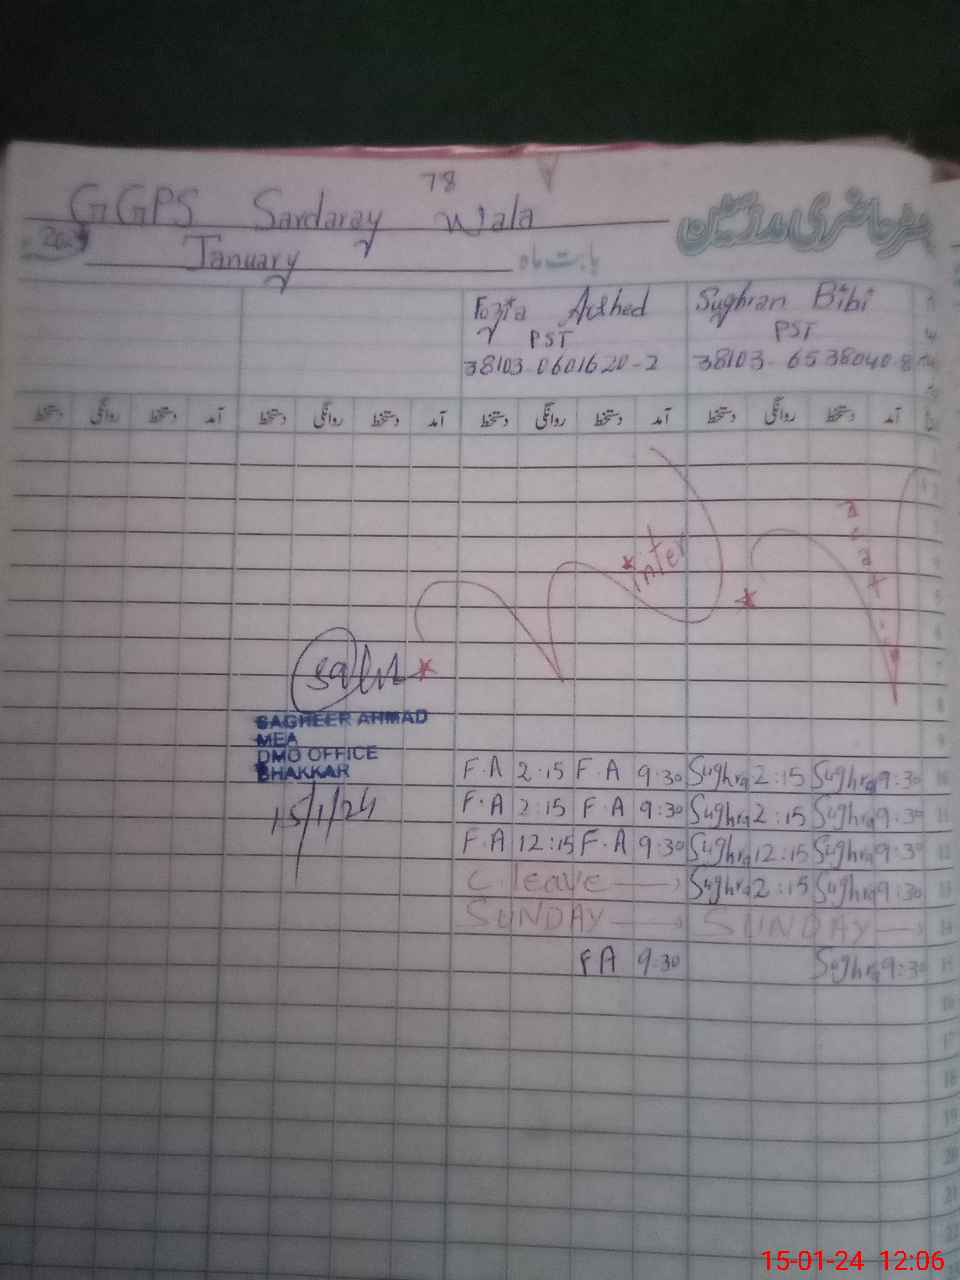 78
GGPS Sardaray Wala
2024
January بابت ماہ
Fozia Arshed Sughran Bibi
PST PST
38103-0601620-2 38103-6538040-8
دستخط روانگی دستخط آمد دستخط روانگی دستخط آمد دستخط روانگی دستخط آمد دستخط روانگی دستخط آمد
winter
SAGHEER AHMAD
MEA
DMO OFFICE
BHAKKAR
15/1/24
F.A 2:15 F.A 9:30 Sughra 2:15 Sughra 9:30 10
F.A 2:15 F.A 9:30 Sughra 2:15 Sughra 9:30 11
F.A 12:15 F.A 9:30 Sughra 12:15 Sughra 9:30 12
C. leave Sughra 2:15 Sughra 9:30 13
SUNDAY SUNDAY 14
FA 9:30 Sughra 9:30 15
16
17
18
19
20
21
22
23
15-01-24 12:06